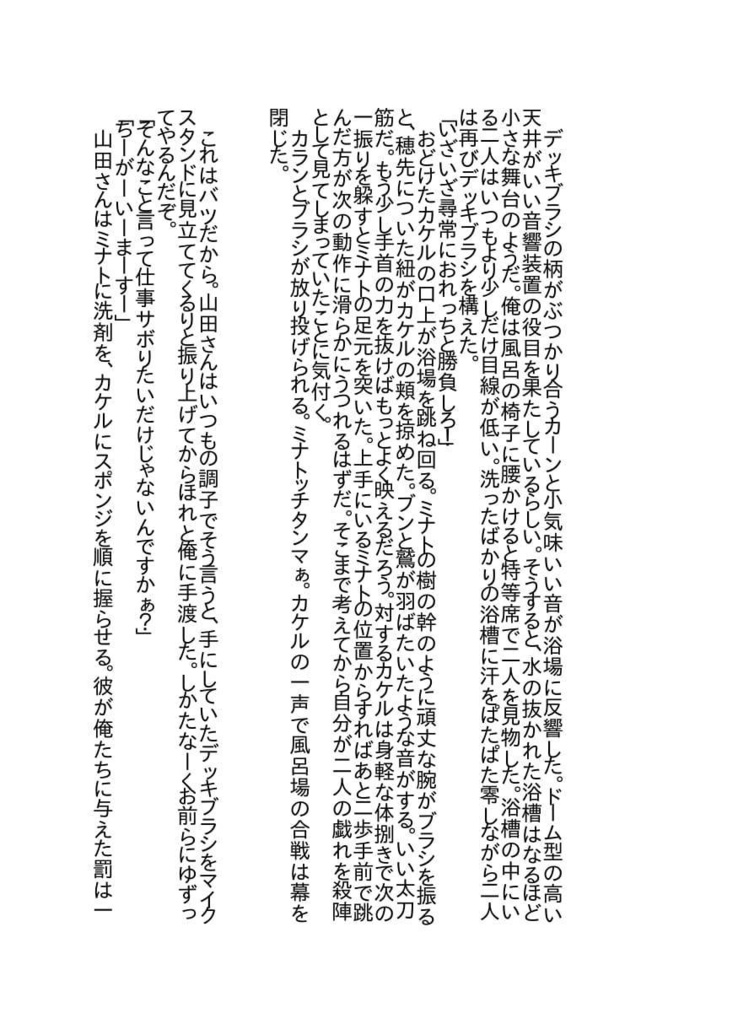 デッキブラシの柄がぶつかり合うカーンと小気味いい音が浴場に反響した。ドーム型の高い
天井がいい音響装置の役目を果たしているらしい。そうすると、水の抜かれた浴槽はなるほど
小さな舞台のようだ。俺は風呂の椅子に腰かけると特等席で二人を見物した。浴槽の中にい
る二人はいつもより少しだけ目線が低い。洗ったばかりの浴槽に汗をぱたぱた零しながら二人
は再びデッキブラシを構えた。
「いざいざ尋常におれっちと勝負しろー」
おどけたカケルの口上が浴場を跳ね回る。ミナトの樹の幹のように頑丈な腕がブラシを振る
と、穂先についた紐がカケルの頬を掠めた。ブンと鷲が羽ばたいたような音がする。いい太刀
筋だ。もう少し手首の力を抜けばもっとよく映えるだろう。対するカケルは身軽な体捌きで次の
一振りを躱すとミナトの足元を突いた。上手にいるミナトの位置からすればあと二歩手前で跳
んだ方が次の動作に滑らかにうつれるはずだ。そこまで考えてから自分が二人の戯れを殺陣
として見てしまっていたことに気付く。
カランとブラシが放り投げられる。ミナトッチタンマぁ。カケルの一声で風呂場の合戦は幕を
閉じた。
これはバツだから。山田さんはいつもの調子でそう言うと、手にしていたデッキブラシをマイク
スタンドに見立ててくるりと振り上げてからほれと俺に手渡した。しかたなーくお前らにゆずっ
てやるんだぞ。
「そんなこと言って仕事サボりたいだけじゃないんですかぁ？」
「ちーがーいーまーすー」
山田さんはミナトに洗剤を、カケルにスポンジを順に握らせる。彼が俺たちに与えた罰は一